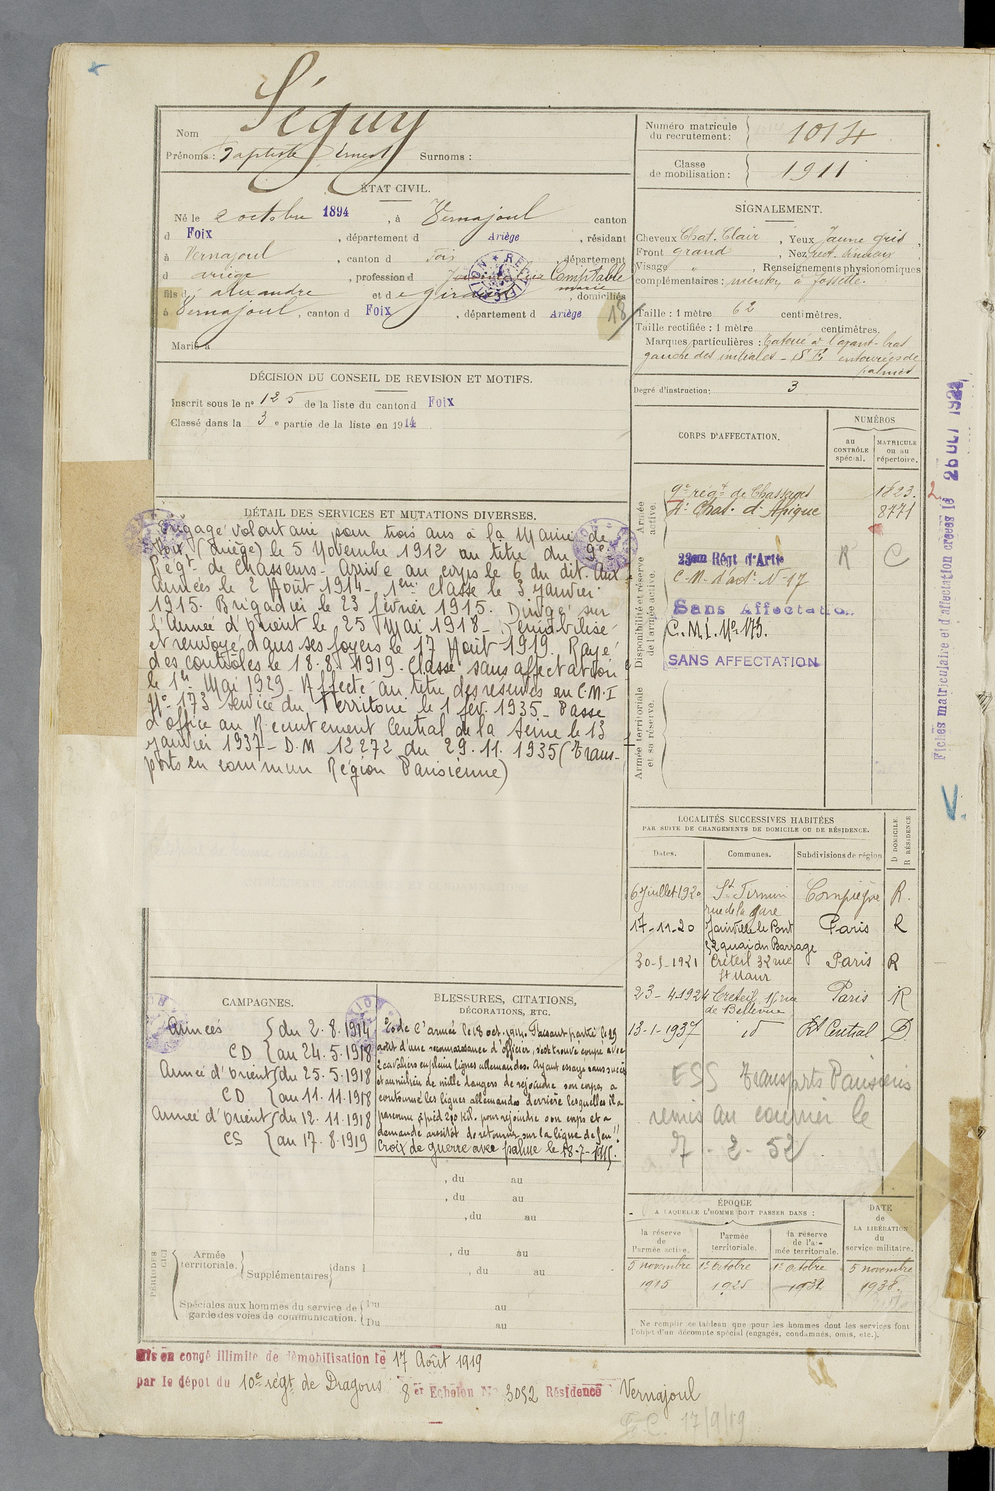 Nom Séguy
Prénoms : Baptiste Ernest Surnoms :
Numéro matricule du recrutement : 1014
Classe de mobilisation : 1911
ÉTAT CIVIL.
Né le 2 octobre 1894, à Vernajoul canton
d Foix, département d Ariège, résidant
à Vernajoul, canton d Foix, département
d Ariège, profession d Comptable
fils d Alexandre et de marie, domiciliés
à Vernajoul, canton d Foix, département d Ariège
18
Marié à
SIGNALEMENT.
Cheveux Chat. Clair, Yeux Jaune gris,
Front grand, Nez
Visage " , Renseignements physionomiques
complémentaires : menton à fossette.
Taille : 1 mètre 62 centimètres.
Taille rectifiée : 1 mètre centimètres.
Marques particulières : Tatoué à l'avant-bras
gauche des initiales - S E entourées de
palmes
Degré d'instruction : 3
DÉCISION DU CONSEIL DE REVISION ET MOTIFS.
Inscrit sous le n° 125 de la liste du canton d Foix
Classé dans la 3e partie de la liste en 1914
CORPS D'AFFECTATION.
NUMÉROS
au CONTRÔLE spécial.
MATRICULE ou au répertoire.
Armée active.
9e régt de Chasseurs 1823.
4e Chas. d'Afrique 8771
Disponibilité et réserve de l'armée active.
23em Régt d'Artie R C
C. M. d'act. N° 17
Sans Affectation.
C.M.I. N° 173.
SANS AFFECTATION
Armée territoriale et sa réserve.
DÉTAIL DES SERVICES ET MUTATIONS DIVERSES.
Engagé volontaire pour trois ans à la Mairie de
Foix (Ariège) le 5 Novembre 1912 au titre du 9e
Régt de Chasseurs - Arrivé au corps le 6 du dit. Aux
armées le 2 Août 1914 - 1ère classe le 3 Janvier
1915. Brigadier le 23 février 1915. Dirigé sur
l'Armée d'Orient le 25 Mai 1918 - Démobilisé
et renvoyé dans ses foyers le 17 Août 1919. Rayé
des contrôles le 18-8-1919. Classé sans affectation
le 1er Mai 1929 - Affecté au titre des réserves au C.M.I
N° 173 service du Territoire le 1 fév. 1935 - Passé
d'office au Recrutement Central de la Seine le 13
Janvier 1937 - D.M 12272 du 29.11.1935 (Trans-
ports en commun Région Parisienne)
Fiches matriculaire et d'affectation créées le 26 OCT 192
LOCALITÉS SUCCESSIVES HABITÉES
PAR SUITE DE CHANGEMENTS DE DOMICILE OU DE RÉSIDENCE.
Dates. Communes. Subdivisions de région D DOMICILE R RÉSIDENCE
6 Juillet 1920 St Firmin rue de la gare Compiègne R.
17-11-20 Joinville le Pont 32 quai du Barrage Paris R
30-5-1921 Créteil 32 rue St Maur Paris R
23-4-1924 Créteil, 16 rue de Bellevue Paris R
13-1-1937 id Rt Central D
ESS Transports Parisiens
remis au courrier le
7-2-52
CAMPAGNES.
Armées { du 2.8.1914
CD { au 24.5.1918
Armée d'Orient { du 25.5.1918
CD { au 11.11.1918
Armée d'Orient { du 12.11.1918
CS { au 17.8.1919
BLESSURES, CITATIONS,
DÉCORATIONS, ETC.
O de l'armée le 18 oct. 1914. Faisant partie le 25
août d'une reconnaissance d'officier, s'est trouvé coupé avec
2 cavaliers en plein lignes allemandes. Ayant essayé sans succès
et au milieu de mille dangers de rejoindre son corps, a
contourné les lignes allemandes derrière lesquelles il a
parcouru à pied 240 Kil. pour rejoindre son corps et a
demandé aussitôt de retourner sur la ligne de feu !!
Croix de guerre avec palme le 18-7-1915.
, du au
, du au
, du au
, du au
, du au
PÉRIODES
Armée territoriale.
Supplémentaires dans l
Spéciales aux hommes du service de
garde des voies de communication.
Du au
Du au
ÉPOQUE
À LAQUELLE L'HOMME DOIT PASSER DANS :
la réserve de l'armée active. l'armée territoriale. la réserve de l'armée territoriale. DATE de LA LIBÉRATION du service militaire.
5 novembre 1er octobre 1er octobre 5 novembre
1915 1925 1931 1938
Ne remplir ce tableau que pour les hommes dont les services font
l'objet d'un décompte spécial (engagés, condamnés, omis, etc.).
Mis en congé illimité de démobilisation le 17 Août 1919
par le dépôt du 10e régt de Dragons 8e Echelon N° 3052 Résidence Vernajoul
17/9/19